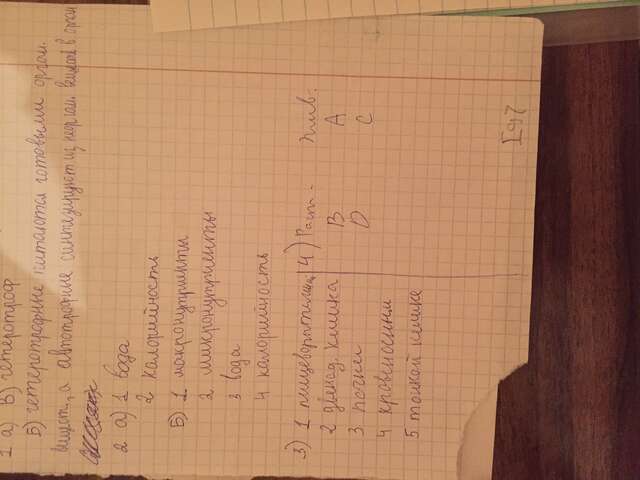 1 а) В) гетеротроф
Б) гетеротрофные питаются готовыми орган.
вещест, а автотрофные синтезируют из неорган. веществ в орган
2 а) 1 вода
2 калорийность
Б) 1 макронутриенты
2 микронутриенты
3 вода
4 калорийность
3) 1 пищеварительная
2 двенад. кишка
3 почки
4 кровеносным
5 тонкой кишке
4) Раст. Жив.
В А
D С